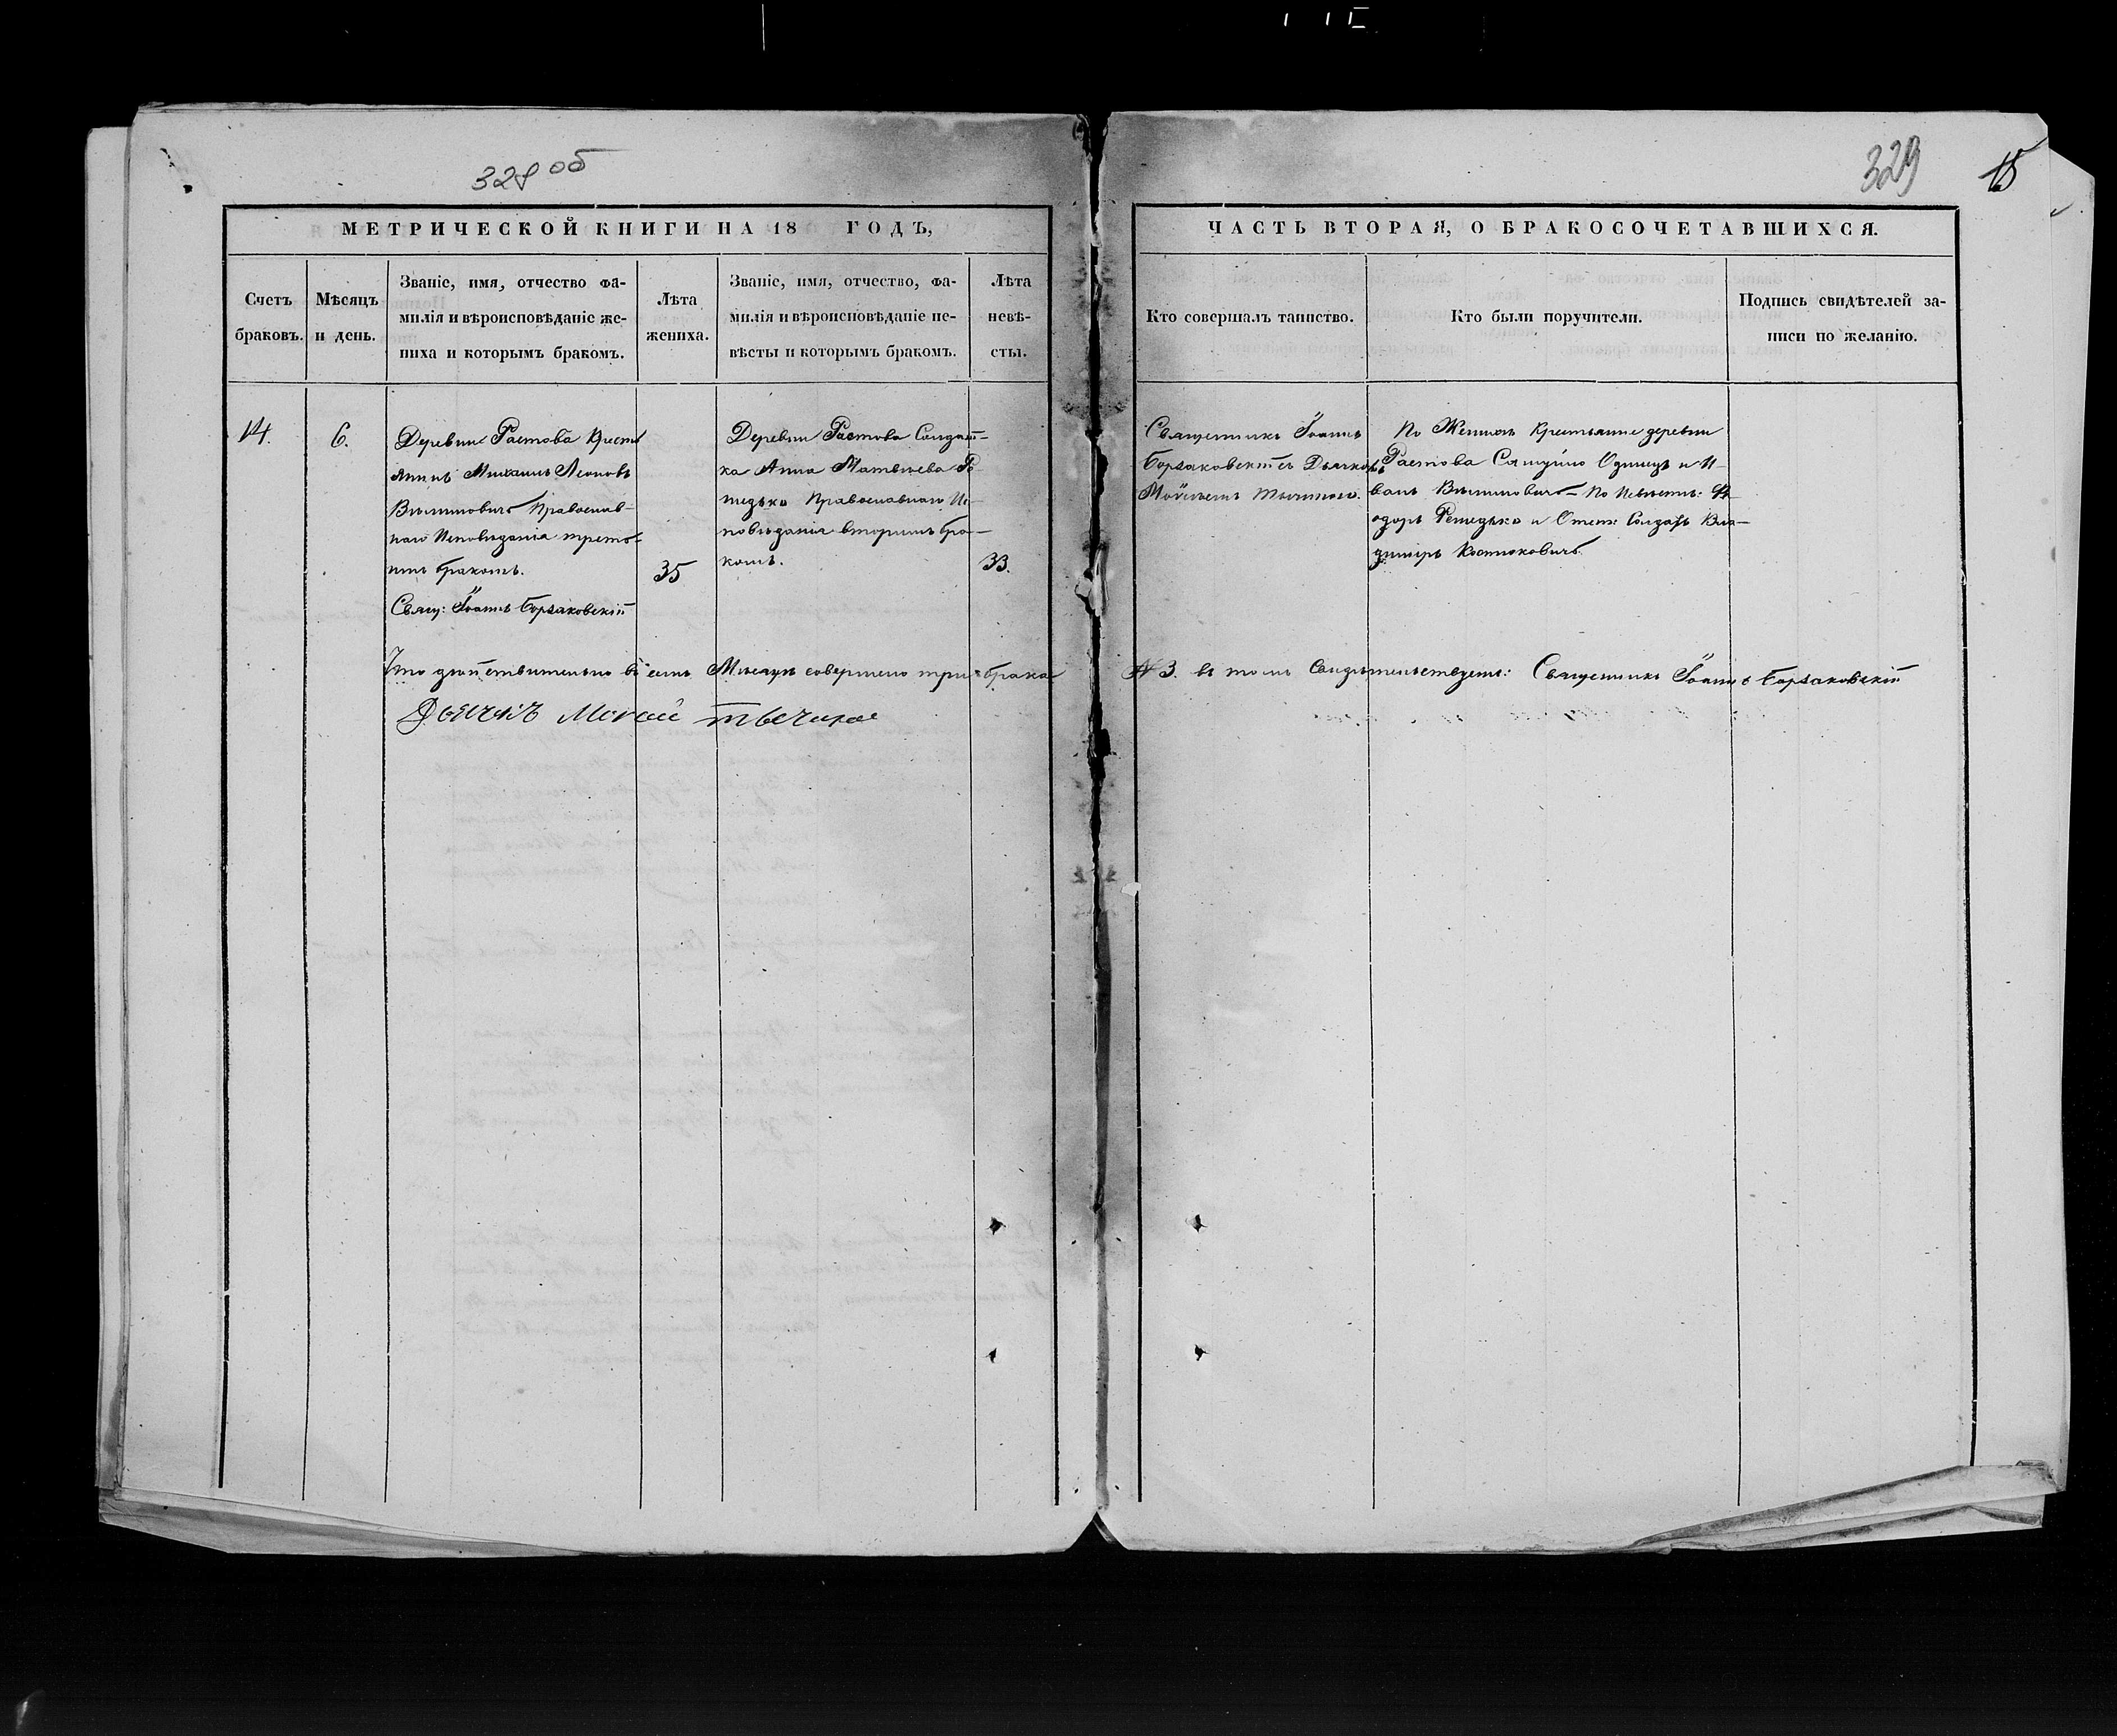 328 об
МЕТРИЧЕСКОЙ КНИГИ НА 18 ГОДЪ,
Счетъ браковъ.
Мѣсяцъ и день.
Званіе, имя, отчество фа-
милія и вѣроисповѣданіе же-
ниха и которымъ бракомъ.
Лѣта
жениха.
Званіе, имя, отчество, фа-
милія и вѣроисповѣданіе не-
вѣсты и которымъ бракомъ.
Лѣта
невѣ-
сты.
14.
6.
Деревни Растова Крест
янинъ Михаилъ Леоновъ
Православ-
наго Исповѣданія треть-
имъ бракомъ.
Свящ: Іоаннъ Борзаковскій
35
Деревни Растова Солдат-
ка Анна Матвѣева Ре-
шедько Православнаго Ис-
повѣданія вторымъ бра-
комъ.
33.
Что дѣйствительно въ семъ Мѣсяцѣ совершено три брака
Дьячокъ
329
15
ЧАСТЬ ВТОРАЯ, О БРАКОСОЧЕТАВШИХСЯ.
Кто совершалъ таинство.
Кто были поручители.
Подпись свидѣтелей за-
писи по желанію.
Священникъ Іоаннъ
Борзаковскій съ Дьячкомъ
По Женихѣ Крестьяне деревни
Растова Одинец и И-
ванъ По Невѣстѣ: Ѳе-
одоръ Решедько и Отст: Солдатъ Вла-
димiръ Костюковичъ.
№ 3. въ томъ Свидѣтельствуетъ: Священникъ Іоаннъ Борзаковскій